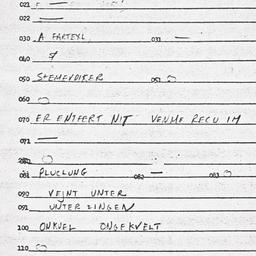 021
022
030 A FARTEYL 031
040
050 STEMENDIFER 051
060
070 ER ENTFERT NIT VENME RECU IM
071
081 PLUCLUNG 082 083
090 VEINT UNTER
091 UNTER ZINGEN
100 ONKVEL ONGEKVELT
110